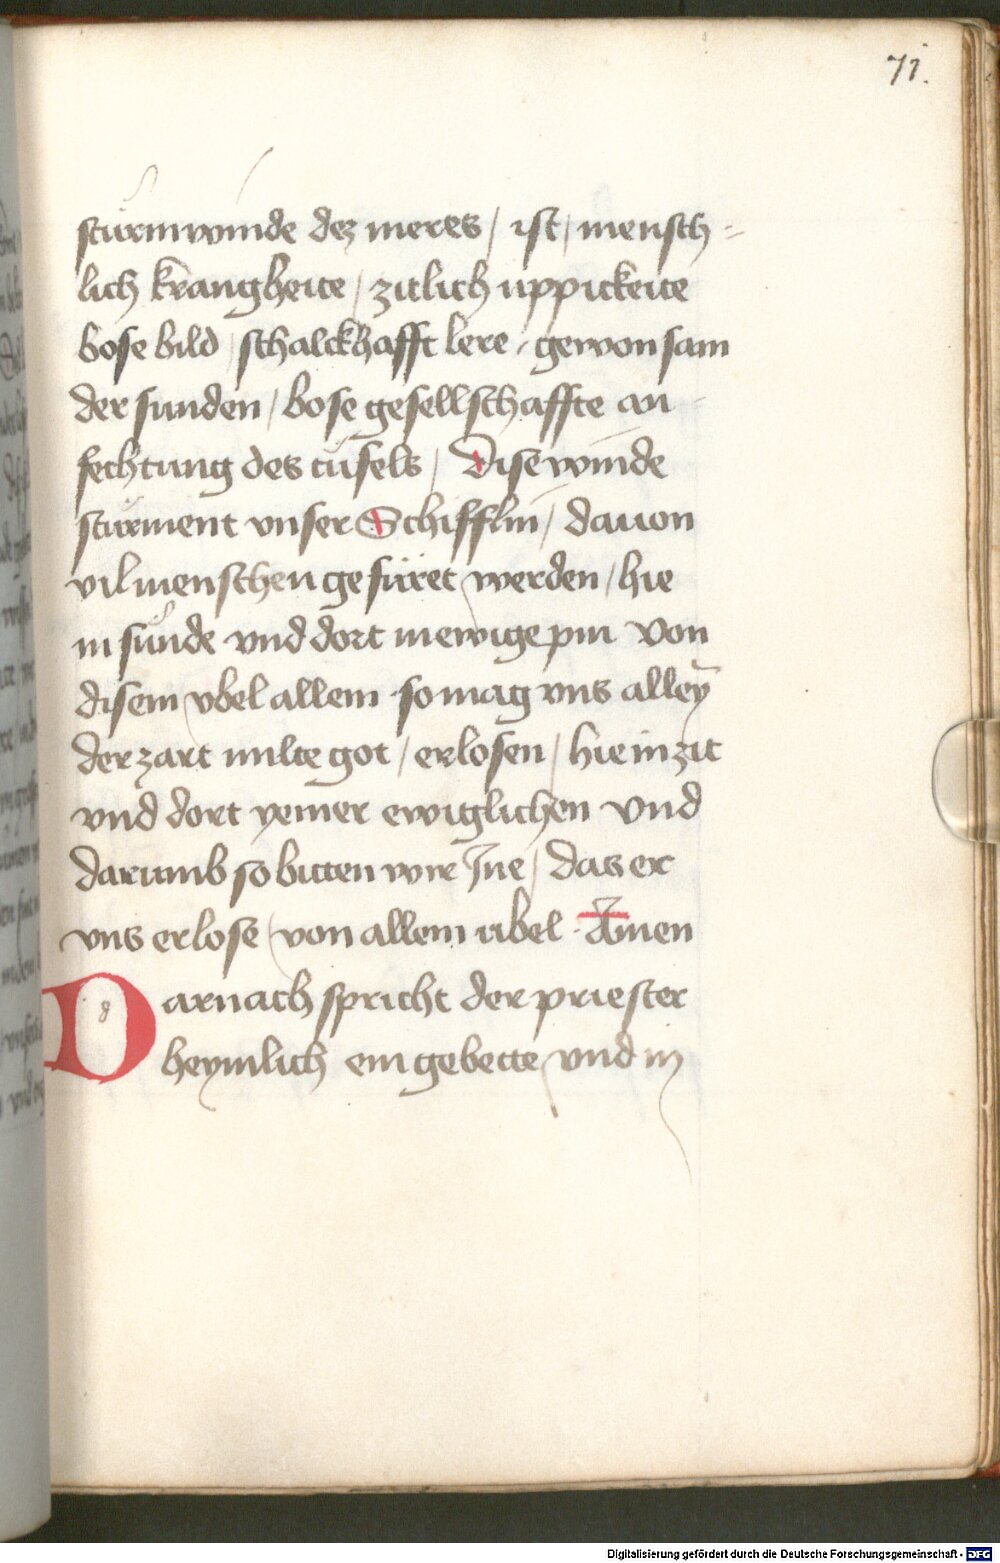 71.
sturmwinde dez meres / ist / mensch=
lich krangheite / zitlich uppickeite
bose bild / schalckhafft lere / gewonsam
der sunden / bose gesellschaffte an
fechtung des tüfels / Dise winde
sturment vnser Schifflin / dauon
vil menschen gefüret werden / hie
in sunde vnd dort in ewige pin Von
disem vbel allem · so mag vns alleȳ
der zart milte got / erlosen / hie in zit
vnd dort yemer ewiglichen Vnd
darumb so bitten wir Jne / das er
vns erlose / von allem ubel · Amen
Darnach spricht der priester
heymlich ein gebette vnd in
Digitalisierung gefördert durch die Deutsche Forschungsgemeinschaft - DFG